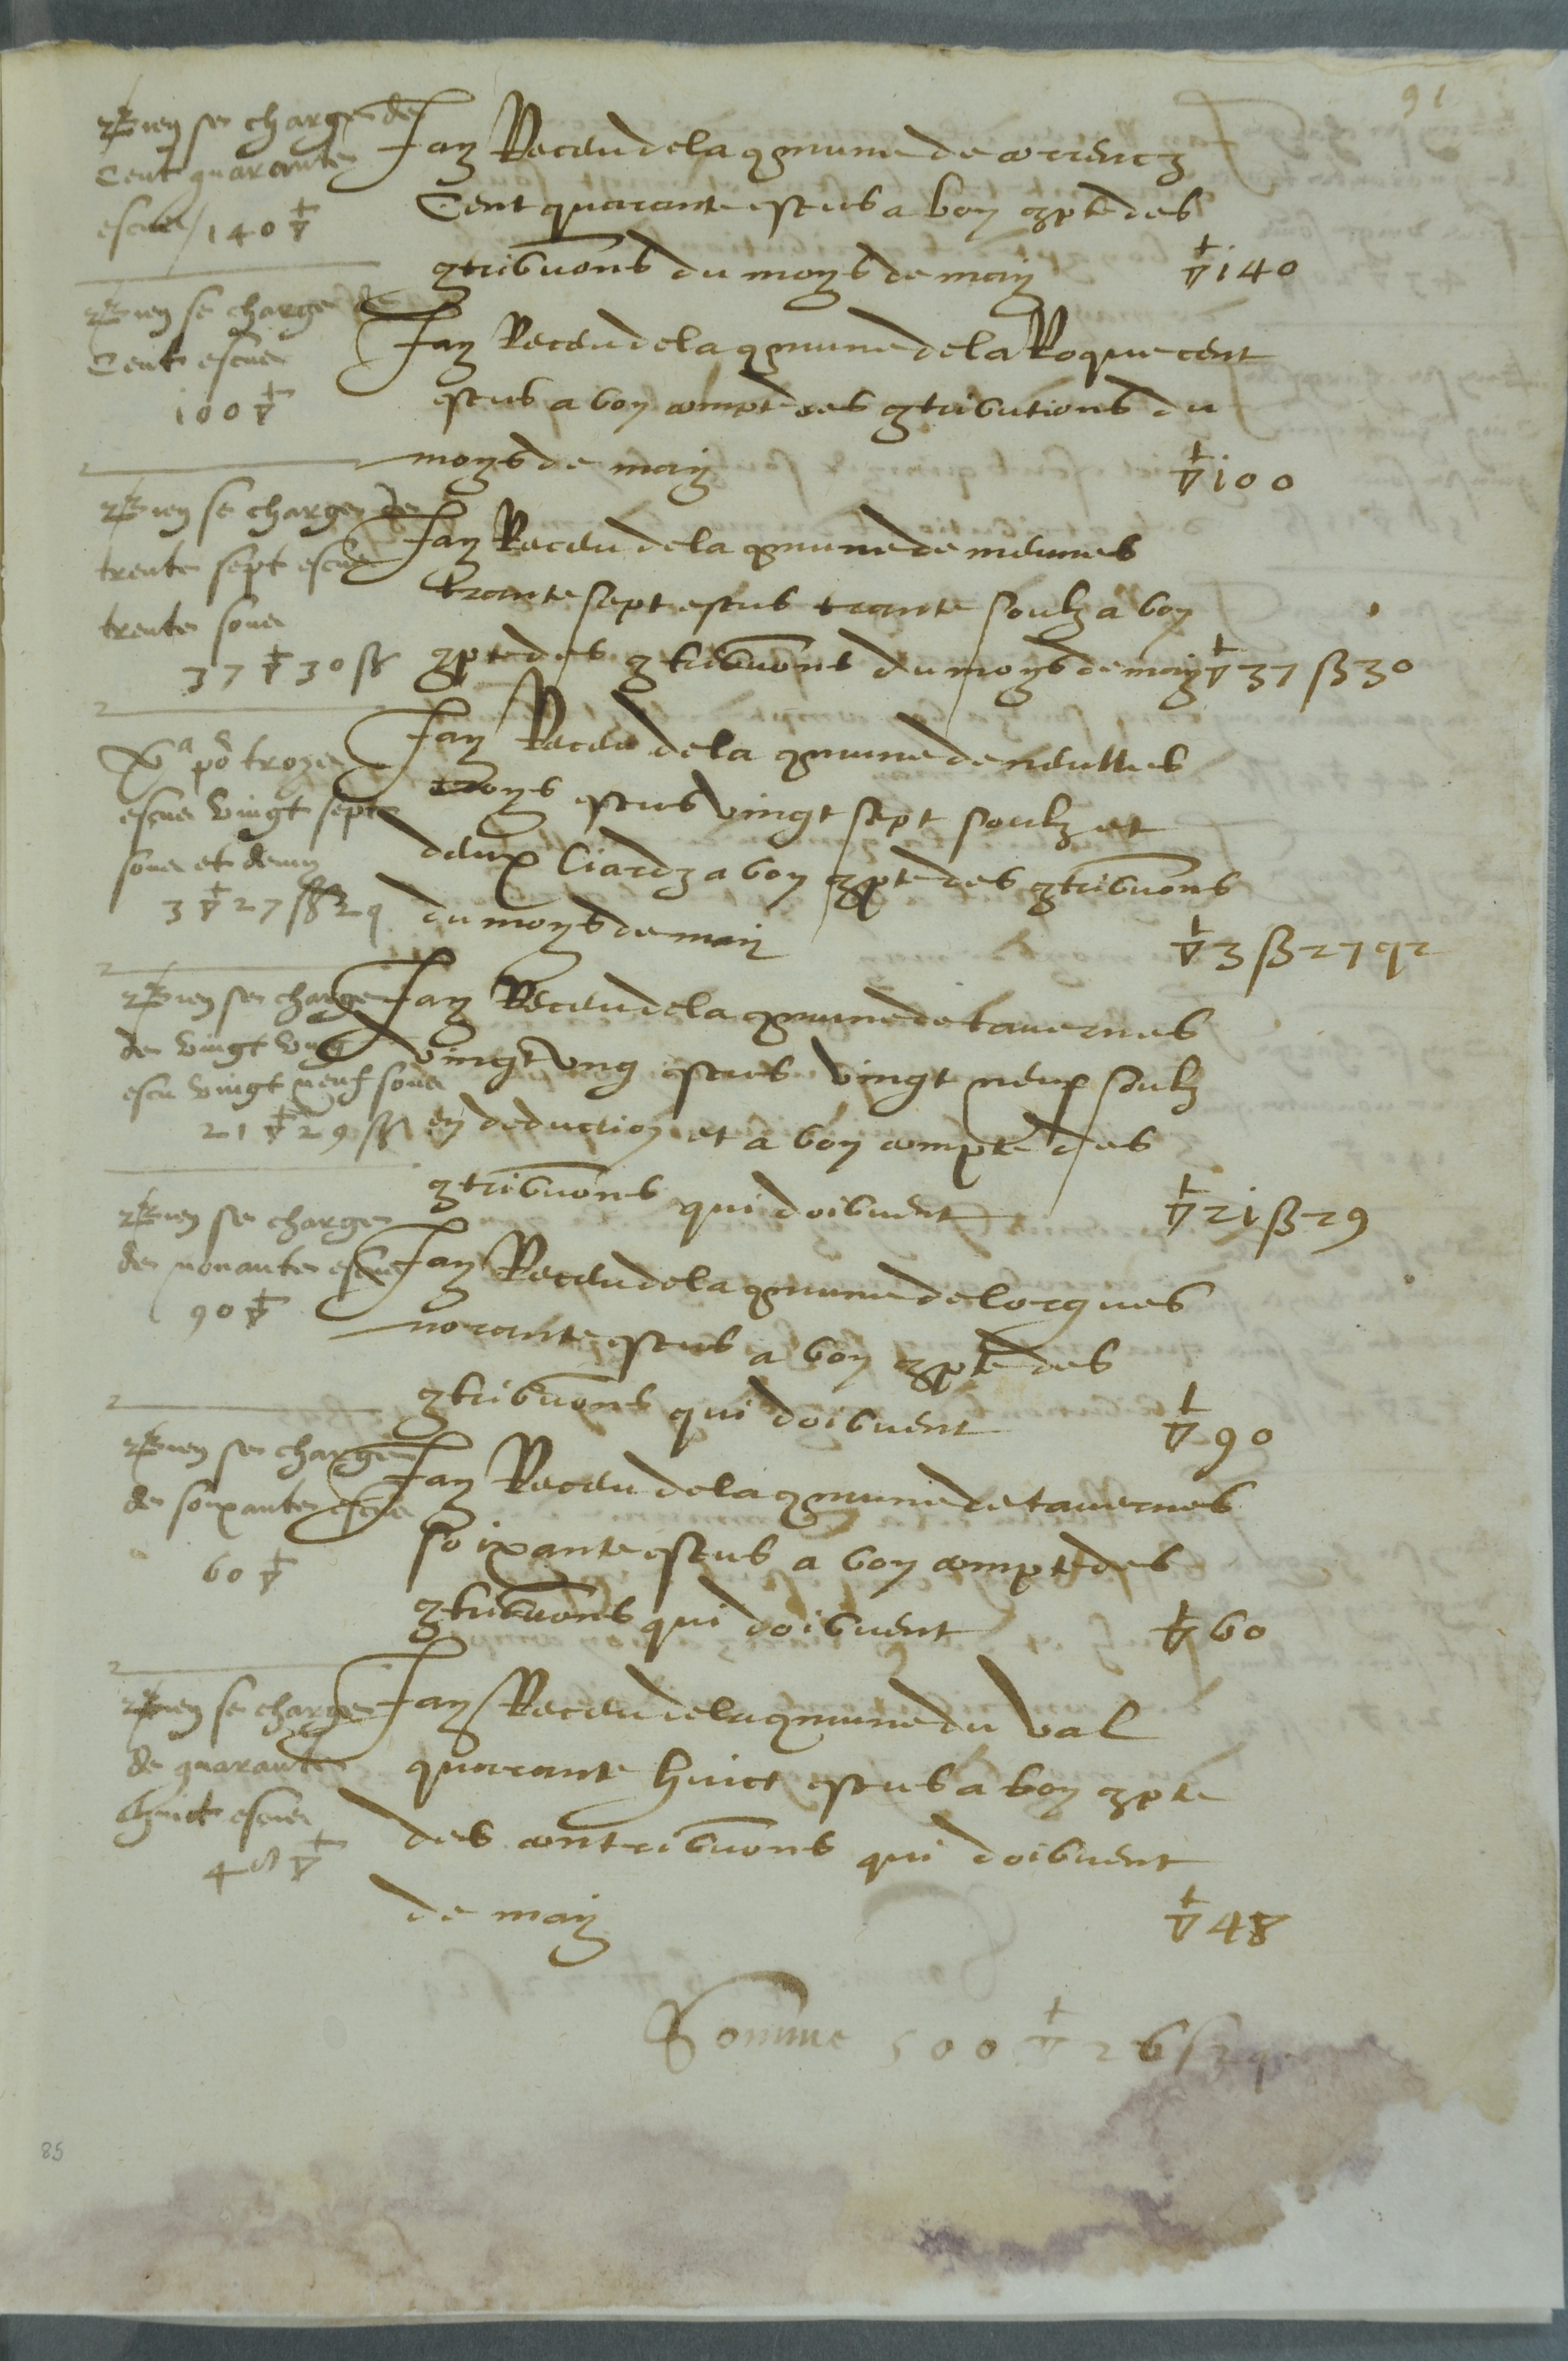 91
Bien se charge de
Cent quarante
escus / 140 ▽
Jay Receu de la cmune de correncz
Cent quarante escus a bon cpte des
ctribuons du moys de may ▽ 140
Bien se charge de
Cent escus
100 ▽
Jay Receu de la cmune de la Roque cent
escus a bon compte des ctributions du
moys de may ▽ 100
Bien se charge de
trente sept escus
trente soux
37 ▽ 30 ß
Jay Receu de la cmune de meunes
trante sept escus trante soulz a bon
cpte des ctribuons du moys de may ▽ 37 ß 30
po troys
escus vingt sept
soux et demy
3 ▽ 27 ß 2 q
Jay Receu de la cmune de neulles
troys escus vingt sept soulz et
deux liardz a bon cpte des ctribuons
du moys de may ▽ 3 ß 27 q 2
Bien se charge
de vingt ung
escu vingt neuf soux
21 ▽ 29 ß
Jay Receu de la cmune de tavernes
vingt ung escus vingt neuf soulz
en deduction et a bon compte des
ctribuons qui doibvent ▽ 21 ß 29
Bien se charge
de nonante escus
90 ▽
Jay Receu de la cmune de lorgues
nonante escus a bon cpte des
ctribuons qui doibvent ▽ 90
Bien se charge
de soixante escus
60 ▽
Jay Receu de la cmune de tavernes
soixante escus a bon compte des
ctribuons qui doibvent ▽ 60
Bien se charge
de quarante
huict escus
48 ▽
Jay Receu de la cmune du val
quarante huict escus a bon cpte
des contribuons qui doibvent
de may ▽ 48
Somme 500 ▽ 26 ß 2 q
85